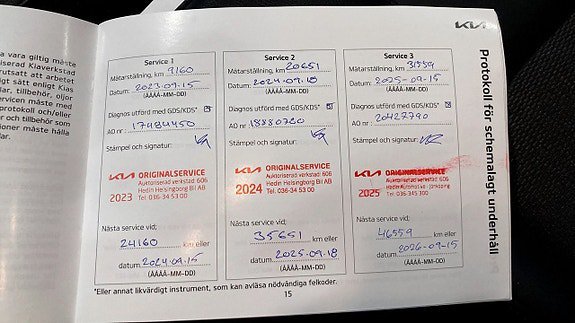 vara giltig måste
iserad Kiaverkstad
rutsatt att arbetet
igt sätt enligt Kias
lar, tillbehör, oljor
rvicen måste med
protokoll och/eller
ch tillbehör som
oner måste hålla
ar.
KIA
Protokoll för schemalagt underhåll
Service 1
Mätarställning, km 9160
Datum: 2023-09-15
(ÅÅÅÅ-MM-DD)
Diagnos utförd med GDS/KDS*
AO nr : 17484450
Stämpel och signatur:
KIA ORIGINALSERVICE
Auktoriserad verkstad: 606
Hedin Helsingborg Bil AB
2023 Tel. 036-34 53 00
Nästa service vid;
24160 km eller
datum 2024-09-15
(ÅÅÅÅ-MM-DD)
Service 2
Mätarställning, km 20651
Datum: 2024-09-18
(ÅÅÅÅ-MM-DD)
Diagnos utförd med GDS/KDS*
AO nr : 18880780
Stämpel och signatur:
KIA ORIGINALSERVICE
Auktoriserad verkstad: 606
Hedin Helsingborg Bil AB
2024 Tel. 036-34 53 00
Nästa service vid;
35651 km eller
datum 2025-09-18
(ÅÅÅÅ-MM-DD)
Service 3
Mätarställning, km 31559
Datum: 2025-09-15
(ÅÅÅÅ-MM-DD)
Diagnos utförd med GDS/KDS*
AO nr : 20427790
Stämpel och signatur:
KIA ORIGINALSERVICE
Auktoriserad verkstad: 606
Hedin Automotive - Jönköping
2025 Tel. 036-345 300
Nästa service vid;
46559 km eller
datum 2026-09-15
(ÅÅÅÅ-MM-DD)
*Eller annat likvärdigt instrument, som kan avläsa nödvändiga felkoder.
15